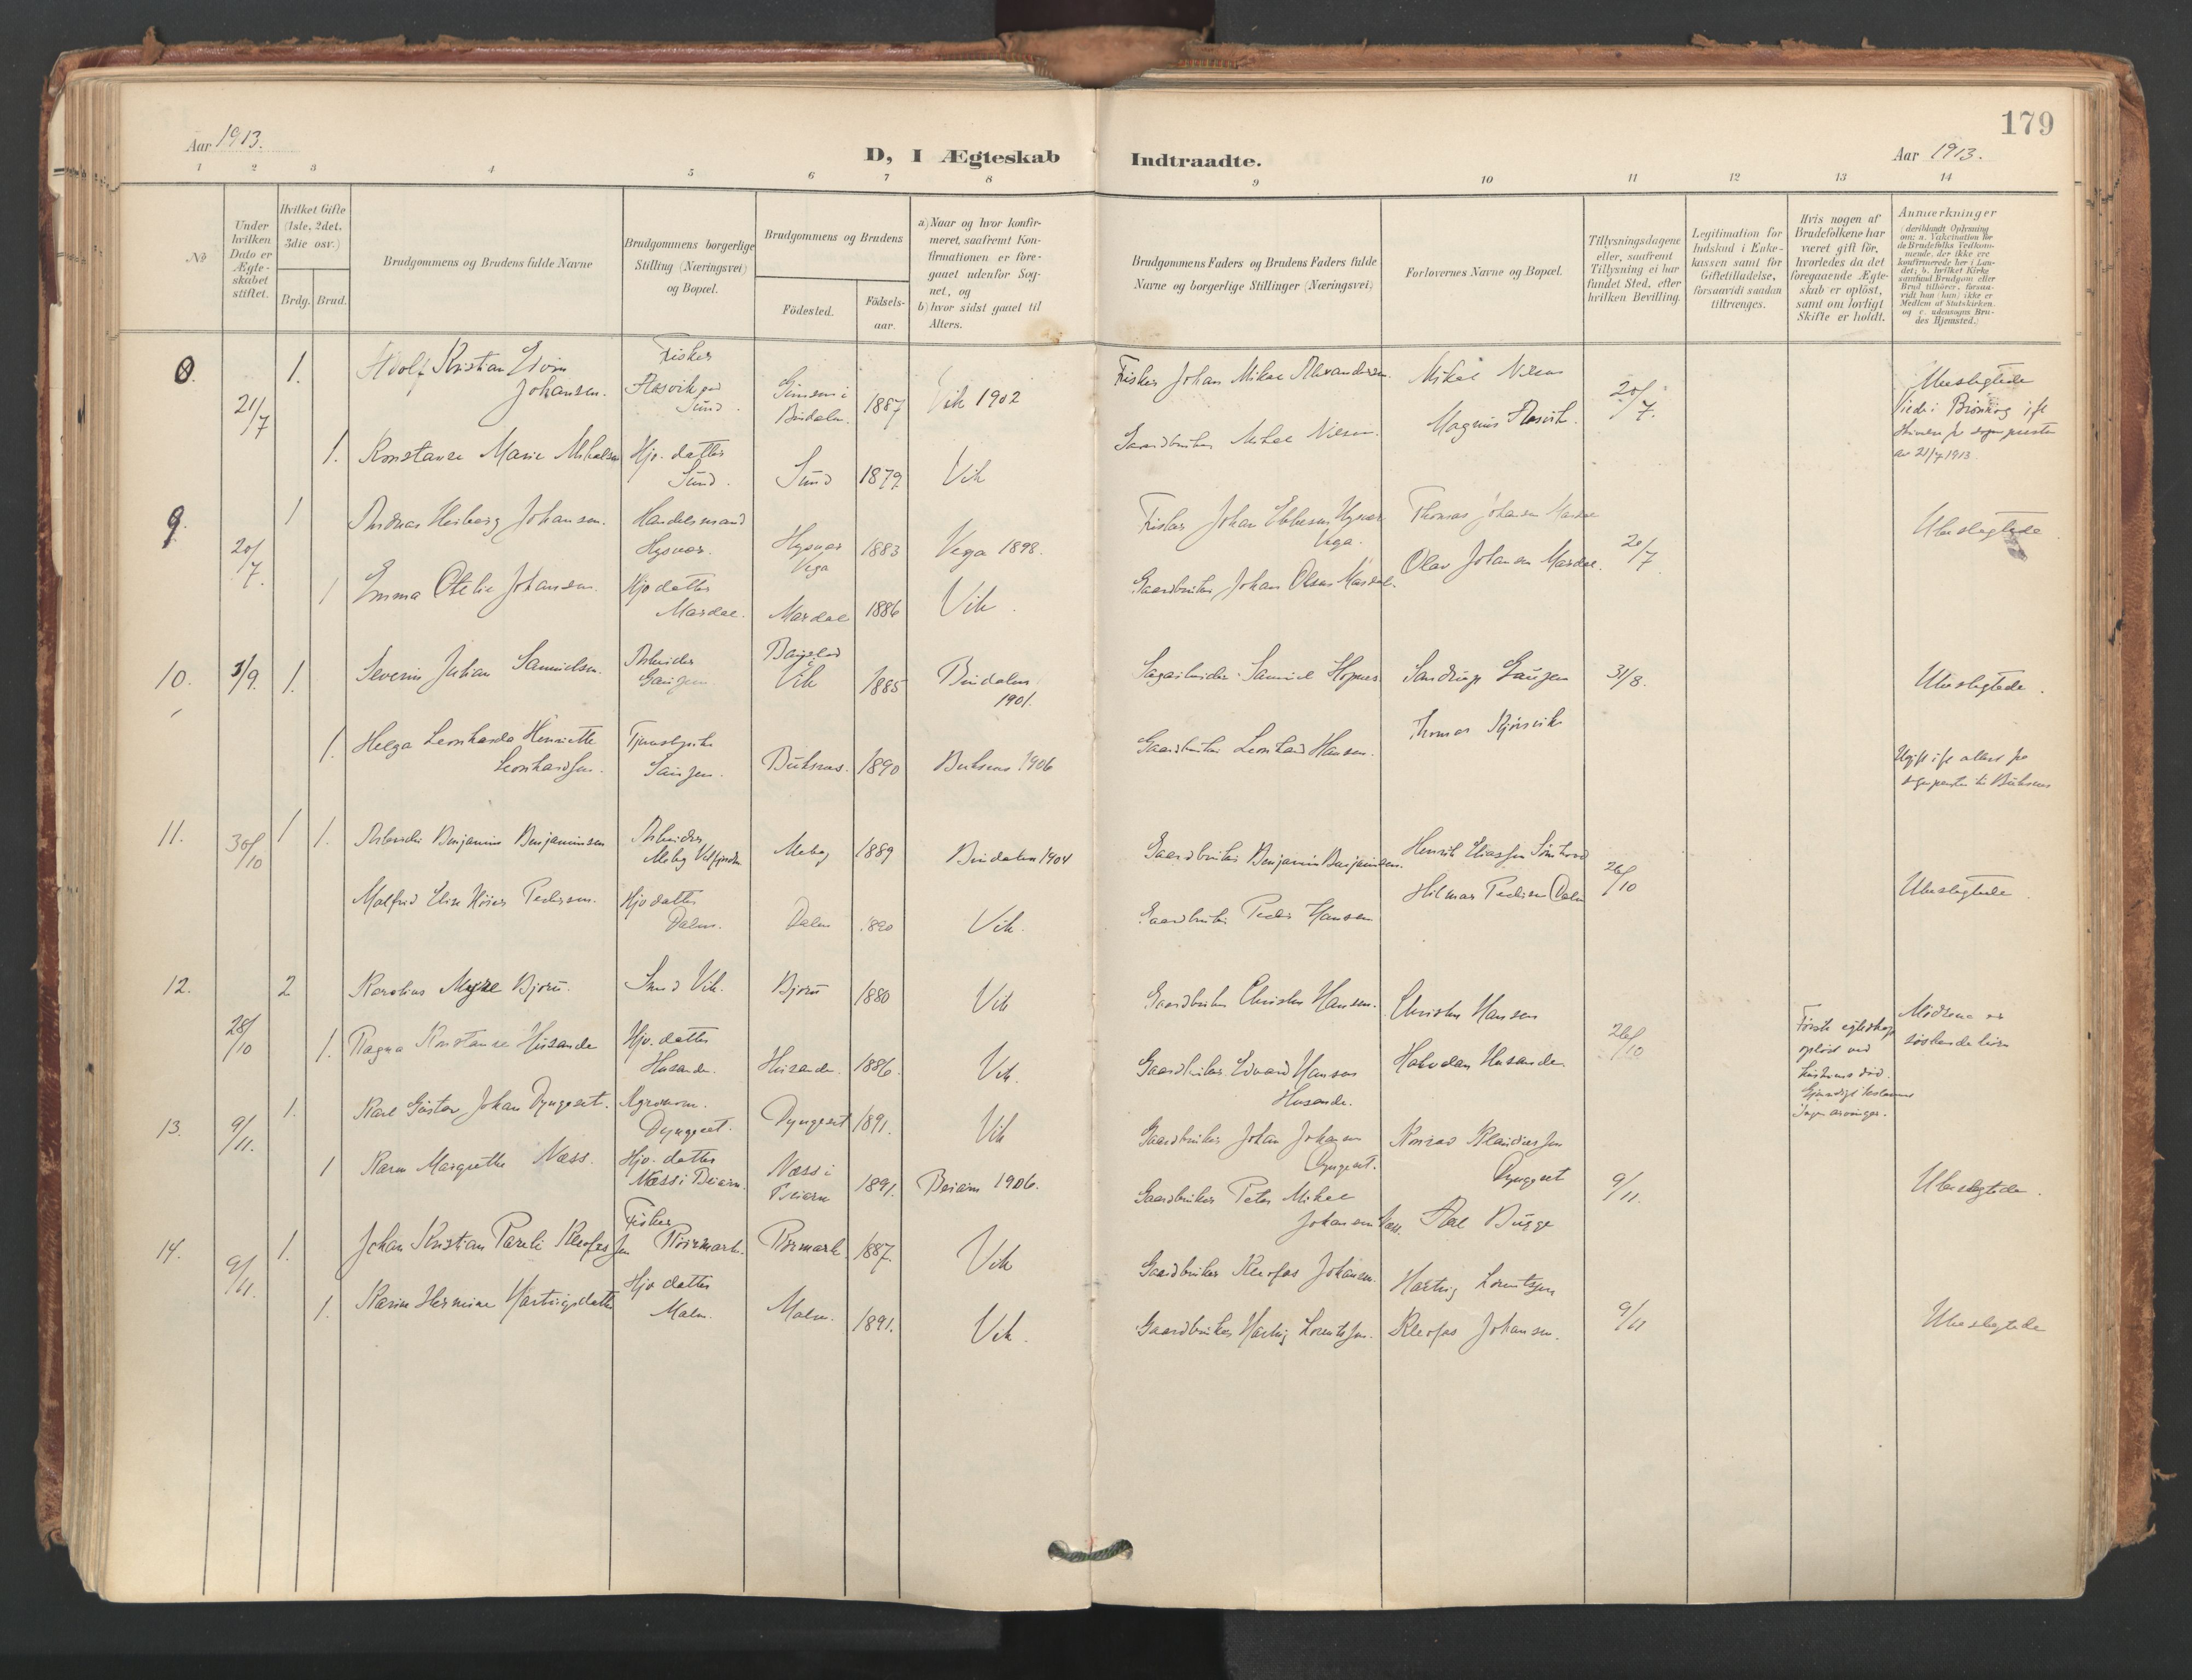 179
Aar 1913.
D, I Ægteskab
Indtraadte.
Aar 1913.
1 2 3 4 5 6 7 8 9 10 11 12 13 14
No
Under hvilken Dato er Ægteskabet stiftet.
Hvilket Gifte (1ste, 2det, 3die osv.)
Brdg. Brud.
Brudgommens og Brudens fulde Navne
Brudgommens borgerlige Stilling (Næringsvei) og Bopæl.
Brudgommens og Brudens
Fødested.
Fødselsaar.
a) Naar og hvor konfirmeret, saafremt Konfirmationen er foregaaet udenfor Sognet, og
b) hvor sidst gaaet til Alters.
Brudgommens Faders og Brudens Faders fulde Navne og borgerlige Stillinger (Næringsvei)
Forlovernes Navne og Bopæl.
Tillysningsdagene eller, saafremt Tillysning ei har fundet Sted, efter hvilken Bevilling.
Legitimation for Indskud i Enkekassen samt for Giftetilladelse, forsaavidt saadan tiltrænges.
Hvis nogen af Brudefolkene har været gift før, hvorledes da det foregaaende Ægteskab er opløst, samt om lovligt Skifte er holdt.
Anmærkninger
(deriblandt Oplysning om: a. Vakcination for de Brudefolks Vedkommende, der ikke ere konfirmerede her i Landet; b. hvilket Kirkesamfund Brudgom eller Brud tilhører, forsaavidt han (hun) ikke er Medlem af Statskirken, og c. udensogns Brudes Hjemsted.)
8. 21/7 1. Adolf Kristian Johansen. Fisker Sund. Bindalen. 1887 Vik 1902 Fisker Johan Mikal Alexandersen. Mikal Nilsen 20/7. Ubeslegtede
1. Konstanse Marie Mikalsen Hjv. datter Sund. Sund 1879 Vik Gaardbruker Mikal Nilsen. Magnus av 21/7 1913.
9. 20/7. 1 Andreas Heiberg Johansen. Handelsmand Hysvær. Hysvær Vega 1883 Vega 1898. Fisker Johan Ebbesen Hysvær Vega. Thomas Johansen Mardal 20/7 Ubeslegtede.
1 Emma Otelie Johansen. Hjv datter Mardal. Mardal 1886 Vik. Gaardbruker Johan Olsen Mardal. Olav Johansen Mardal.
10. 3/9. 1. Severin Julian Samuelsen. Arbeider Vik 1885 Bindalen 1901. Sagarbeider Samuel 31/8. Ubeslegtede.
1. Helga Leonharda Henriette Leonhardsen. Tjenestepike Buksnes. 1890 Buksnes 1906 Gaardbruker Leonhard Hansen. Thomas
Ugift ifl attest fra sognepresten til Buksnes
11. 30/10 1 1. Arbeider Benjamin Benjaminsen Arbeider 1889 Bindalen 1904 Gaardbruker Benjamin Benjaminsen. Henrik Eliassen 26/10 Ubeslegtede.
Malfrid Elise Pedersen. Hjv datter Dalen. Dalen 1890 Vik. Gaardbruker Peder Hansen Hilmar Pedersen Dalen
12. 28/10 2 Karolius Bjøru. Sund Vik. Bjøru 1880 Vik Gaardbruker Christen Hansen. Christen Hansen 26/10 Første egteskap opløst ved hustruens død. Ingen arvinger. Mødrene er søskendebørn
1. Ragna Konstanse Husande Hjv. datter Husande. Husande. 1886. Vik. Gaardbruker Edvard Hansen Husande. Halvdan Husande
13. 9/11. 1. Karl Gustav Johan Dyngset. Agronom. Dyngset. Dyngset 1891. Vik Gaardbruker Johan Johansen Dyngset. Konrad Klaudiussen Dyngset 9/11. Ubeslegtede.
1 Karen Margrethe Næss. Hjv. datter Næss i Beiarn. Næss i Beiarn 1891. Beiarn 1906. Gaardbruker Peter Mikal Johansen Næss. Bugge
14. 9/11. 1. Johan Kristian Pareli Kleofassen Fisker 1887. Vik Gaardbruker Kleofas Johansen. Hartvig Lorentsen 9/11 Ubeslegtede
1. Karin Hermine Hartvigsdatter Hjv datter Malm. Malm. 1891. Vik. Gaardbruker Hartvig Lorentsen. Kleofas Johansen.